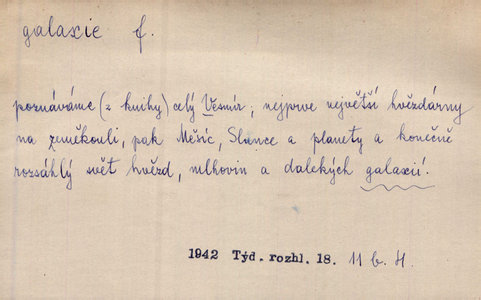 galaxie f.
poznáváme (z knihy) celý Vesmír, nejprve největší hvězdárny
na zeměkouli, pak Měsíc, Slunce a planety a konečně
rozsáhlý svět hvězd, mlhovin a dalekých galaxií.
1942 Týd. rozhl. 18. 11 b. H.